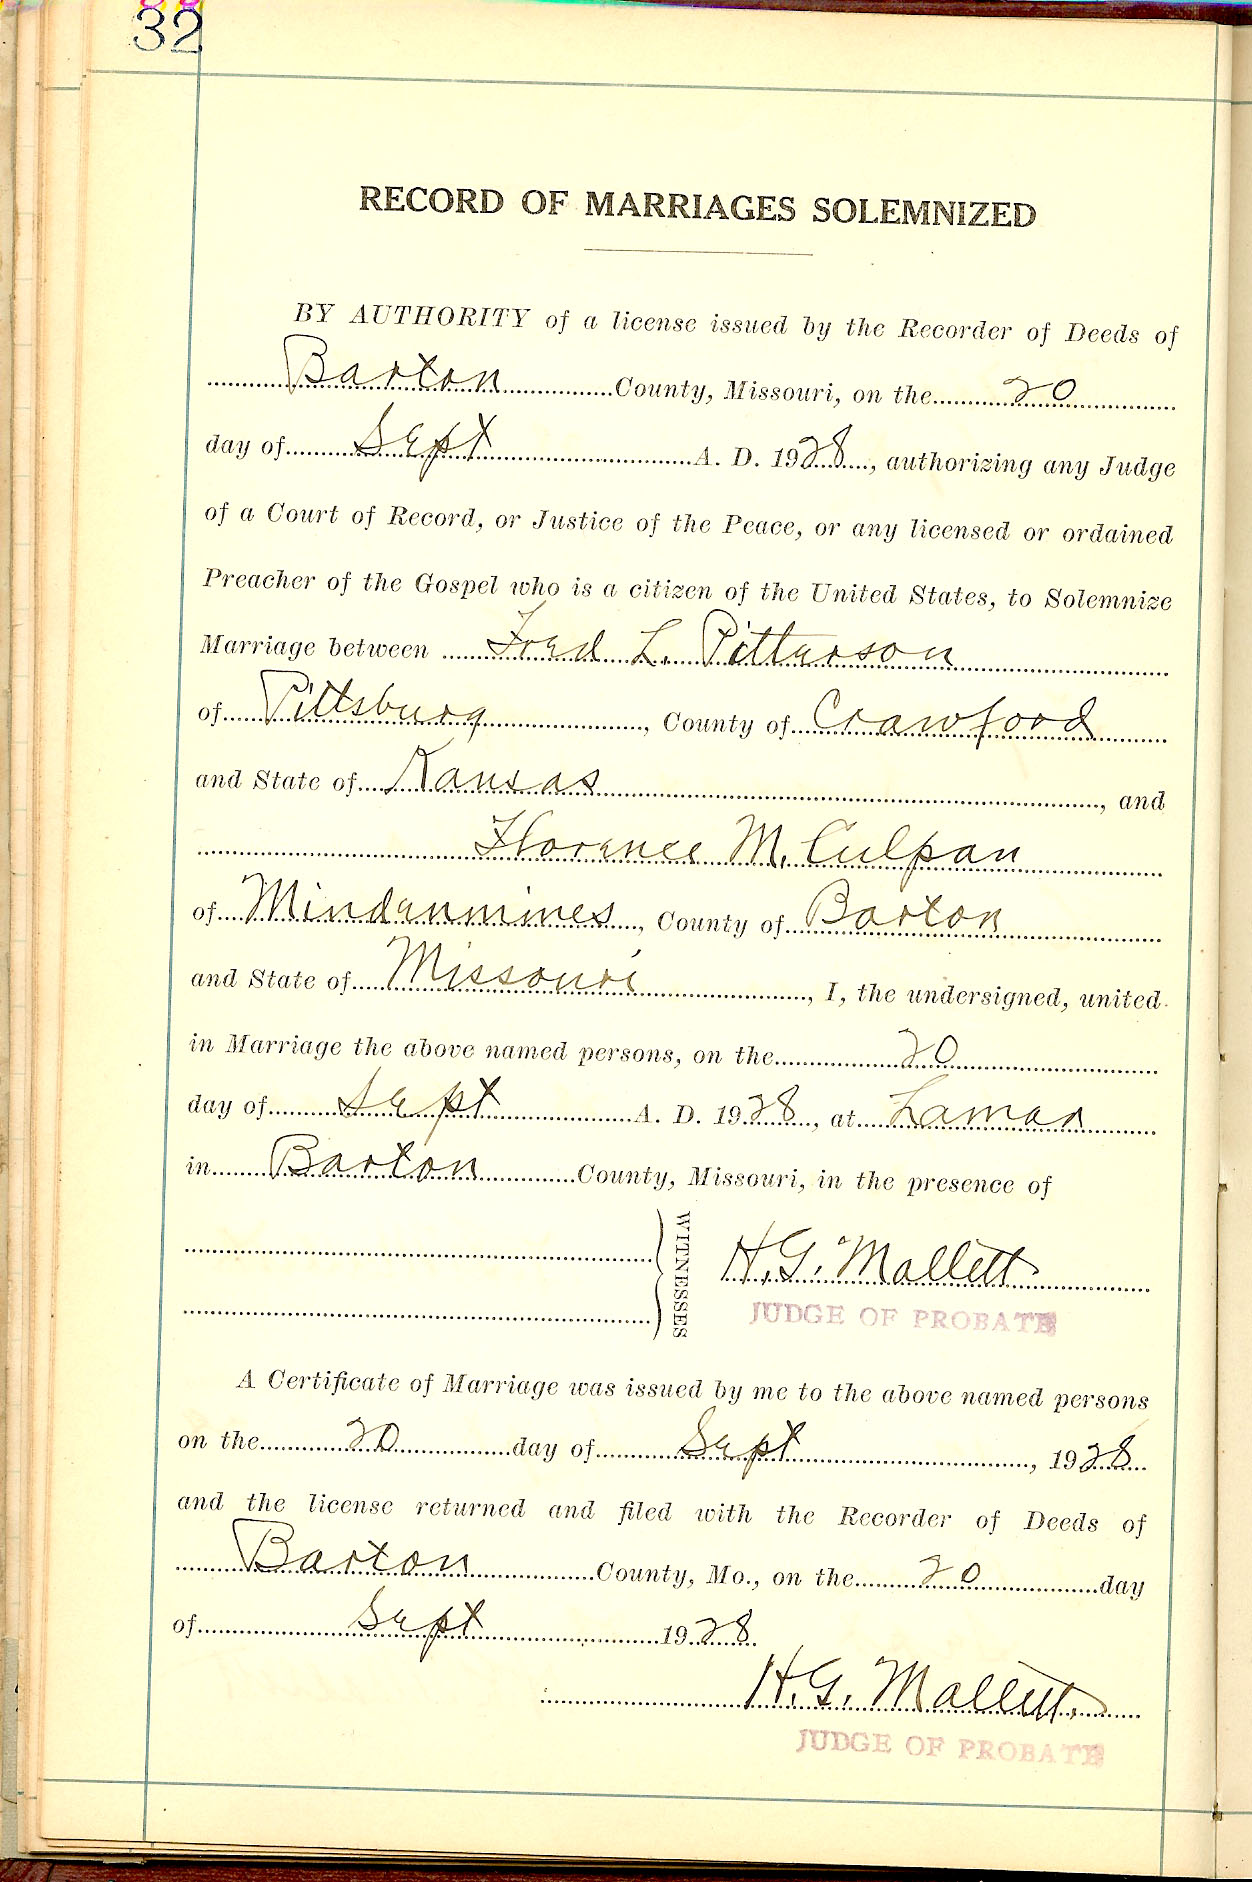 32
RECORD OF MARRIAGES SOLEMNIZED
BY AUTHORITY of a license issued by the Recorder of Deeds of
Barton County, Missouri, on the 20
day of Sept A. D. 1928, authorizing any Judge
of a Court of Record, or Justice of the Peace, or any licensed or ordained
Preacher of the Gospel who is a citizen of the United States, to Solemnize
Marriage between Fred L. Pitterson
of Pittsburg, County of Crawford
and State of Kansas, and
Florence M. Culpan
of Mindenmines, County of Barton
and State of Missouri, I, the undersigned, united
in Marriage the above named persons, on the 20
day of Sept A. D. 1928, at Lamar
in Barton County, Missouri, in the presence of
WITNESSES
H. G. Mallett
JUDGE OF PROBATE
A Certificate of Marriage was issued by me to the above named persons
on the 20 day of Sept, 1928
and the license returned and filed with the Recorder of Deeds of
Barton County, Mo., on the 20 day
of Sept 1928.
H. G. Mallett
JUDGE OF PROBATE